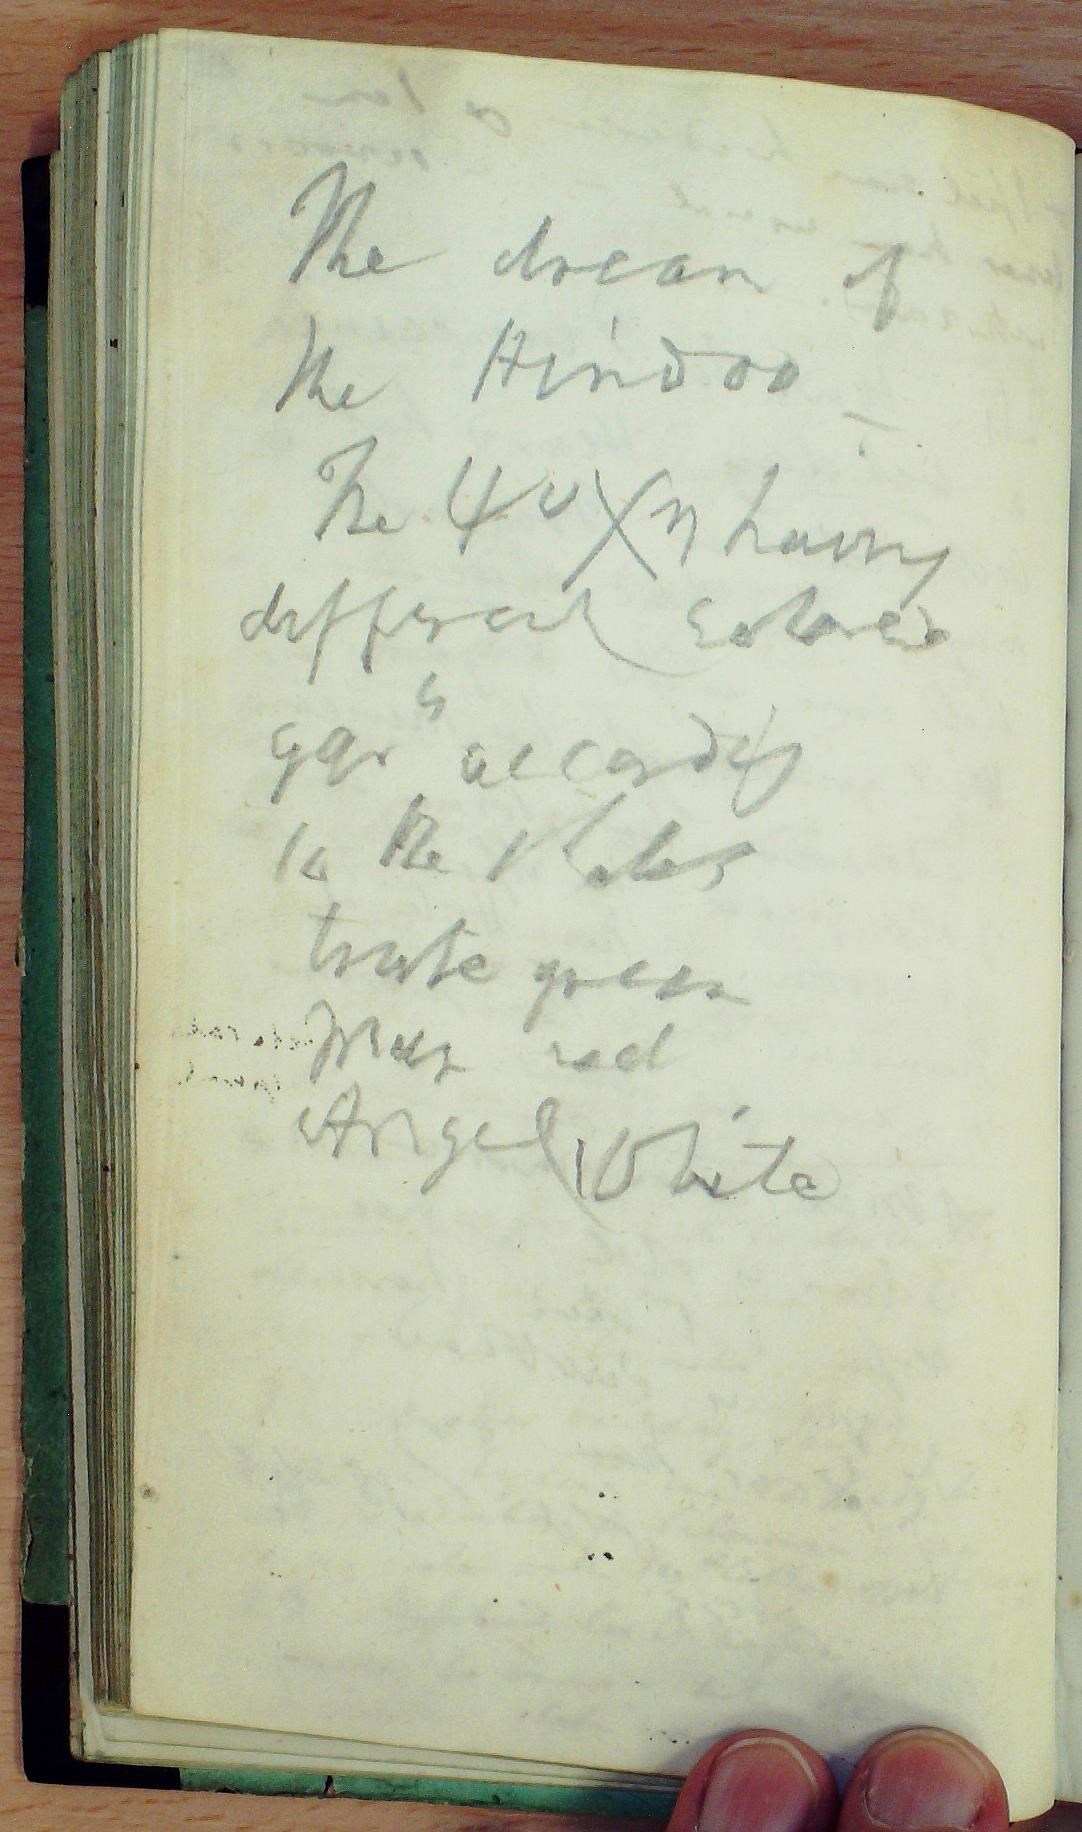 The dream of
the Hindoo –
The ψυχη having
different colored
gar<sup>s</sup> according
to the states
brute green
Man red
Angel White